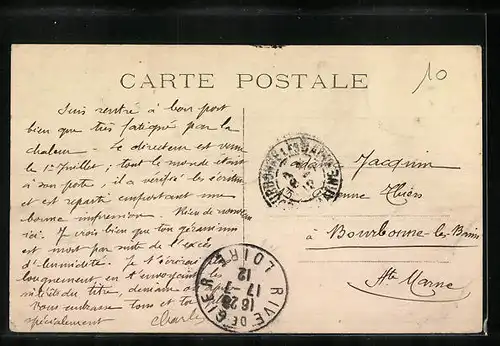 10
CARTE POSTALE
Suis rentré à bon port
bien que très fatigué par la
chaleur — Le directeur est venu
le 1er Juillet ; tout le monde était
à son poste, il a vérifié les écritures
et est reparti emportant une
bonne impression Rien de nouveau
ici. Je crois bien que ton géranium
est mort par suite de l'excès
d'humidité. Je t'écrirai
longuement en t'envoyant les
intérêts du titre, demain ou
Vous embrasse tous et toi
spécialement Charles
Madame
Jacquin
Avenue Thiers
à Bourbonne-les-Bains
Hte Marne
RIVE DE GIER
16 25
17-7
12
LOIRE